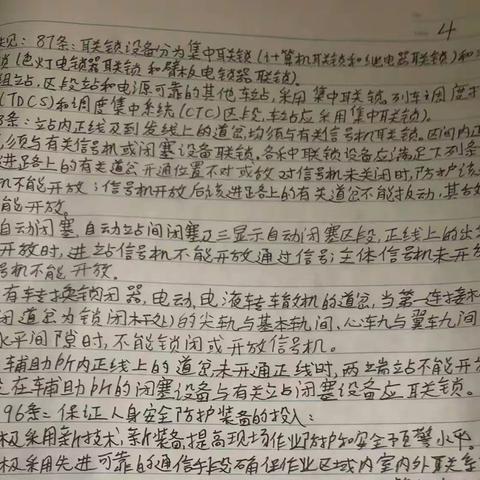 4
规: 87条: 联锁设备分为集中联锁(计算机联锁和继电器联锁)和
锁(色灯电锁器联锁和臂板电锁器联锁).
组站,区段站和电源可靠的其他车站,采用集中联锁,列车调度
(TDCS)和调度集中系统(CTC)区段,车站应采用集中联锁).
条:站内正线及到发线上的道岔均须与有关信号机联锁.区间内正
须与有关信号机或闭塞设备联锁.各种联锁设备应满足下列条
进路上的有关道岔开通位置不对或敌对信号机未关闭时,防护该
机不能开放;信号机开放后该进路上的有关道岔不能扳动,其敌
能开放.
自动闭塞,自动站间闭塞及三显示自动闭塞区段,正线上的出
开放时,进站信号机不能开放通过信号;主体信号机未开
号机不能开放.
有转换锁闭器,电动,电液转辙机的道岔,当第一连接杆
闭道岔为锁闭杆处)的尖轨与基本轨间、心轨与翼轨间
水平间隙时,不能锁闭或开放信号机.
辅助所内正线上的道岔未开通正线时,两端站不能开
在辅助所的闭塞设备与有关站闭塞设备应联锁。
96条: 保证人身安全防护装备的投入:
极采用新技术,新装备提高现场作业防护和安全预警水平.
极采用先进可靠的通信手段确保作业区域内室内外联系